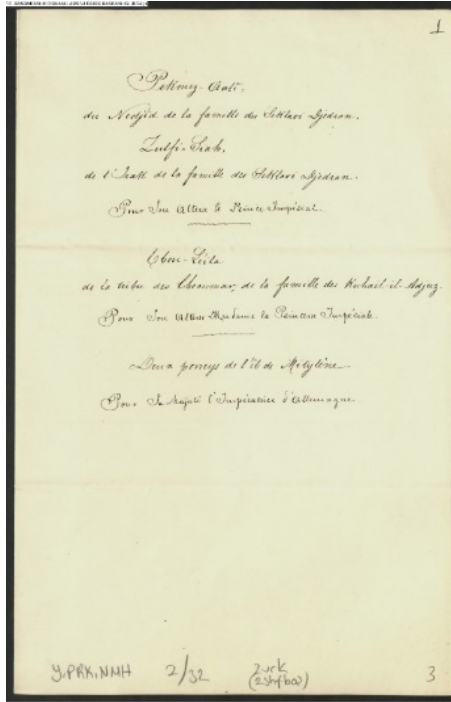 1
Pekmez-Aati.
du Nedjid de la famille des Seklavi Djedran.
Zulfi-Siah.
de l'Irak de la famille des Seklavi Djedran.
Pour Son Altesse le Prince Impérial.
Ebou-Léila
de la tribu des Chammar, de la famille des Kuhail-il-Adjuz.
Pour Son Altesse Madame la Princesse Impériale.
Deux poneys de l'île de Metylène
Pour Sa Majesté l'Impératrice d'Allemagne.
Y.PRK.NMH 2/32
3